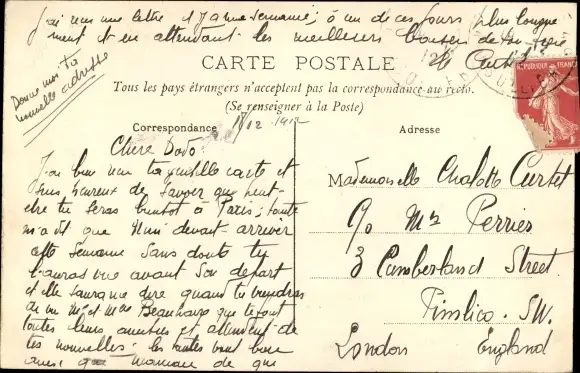 J'ai reçu une lettre d'Y a une semaine; à un de ces jours plus longue
ment et en attendant les meilleurs baisers de ton
Curtet
Donne moi ta
nouvelle adresse
CARTE POSTALE
Tous les pays étrangers n'acceptent pas la correspondance au recto.
(Se renseigner à la Poste)
RÉPUBLIQUE FRANÇAISE
Correspondance
Adresse
12 1912
Chère Dodo
J'ai bien reçu ta gentille carte et
suis heureux de savoir que peut-
être tu seras bientôt à Paris; tante
m'a dit que devait arriver
cette semaine sans doute tu
l'auras vue avant son départ
et elle saura dire quand tu viendras
de vu Mr et Mme que te font
toutes leurs amitiés et attendent de
tes nouvelles; les tantes vont bien
aussi maman de
Mademoiselle Charlotte Curtet
c/o Mrs Perrier
3 Cumberland Street
Pimlico. SW.
London England